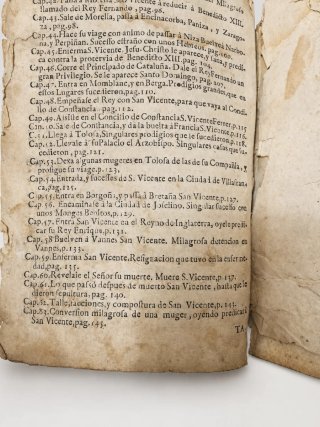 llamado del Rey Fernando, pag. 96.
Cap. 43. Sale de Morella, passa à Encinacorba, Paniza, y Zaragoza, pag. 98.
Cap. 44. Haze su viage con animo de passar à Niza
y Perpiñan. Sucesso estraño con unos Hebreos, pag. 100.
Cap. 45. Enferma S. Vicente. Jesu-Christo le aparece,
ca la protervia de Benedito XIII. pag. 103.
Cap. 46. Corre el Principado de Cataluña. Dale el Rey Fernando un
gran Privilegio. Se le aparece Santo Domingo, pag. 107.
Cap. 47. Entra en Momblanc, y en Berga. Prodigios grandes, que en
estos Lugares sucedieron, pag. 110.
Cap. 48. Empeñale el Rey con San Vicente, para que vaya al Concilio
de Constancia. pag. 112.
Cap. 49. Assiste en el Concilio de Constancia S. Vicente Ferrer, p. 115
Cap. 50. Sale de Constancia, y dà la buelta à Francia S. Vicente, p. 116.
Cap. 51. Llega à Tolosa, Singulares prodigios que le sucedieron, p. 118.
Cap. 52. Llevale à su Palacio el Arzobispo. Singulares casos que sucedieron
, pag. 121.
Cap. 53. Dexa à gunas mugeres en Tolosa de las de su Compañia, y
prosigue su viage, p. 123.
Cap. 54. Entrada, y sucessos de S. Vicente en la Ciudad de Villafranca,
pag. 125.
Cap. 55. Entra en Borgoña, y passa à Bretaña San Vicente, p. 127.
Cap. 56. Encaminase à la Ciudad de Joselino. Singular sucesso con
unos Monges Benitos, p. 129.
Cap. 57. Entra San Vicente en el Reyno de Inglaterra, oyele predicar
su Rey Enrique, p. 131.
Cap. 58 Buelven à Vannes San Vicente. Milagrosa detencion en
Vannes, p. 133.
Cap. 59. Enferma San Vicente. Resignacion que tuvo en la enfermedad,
pag. 135.
Cap. 60. Revelale el Señor su muerte, Muere S. Vicente, p. 137.
Cap. 61. Lo que passò despues de muerto San Vicente, hasta que le
dieron sepultura, pag. 140.
Cap. 62. Talle, facciones, y compostura de San Vicente, p. 143.
Cap. 63. Conversion milagrosa de una muger, oyendo predicar à
San Vicente, pag. 145.
TA